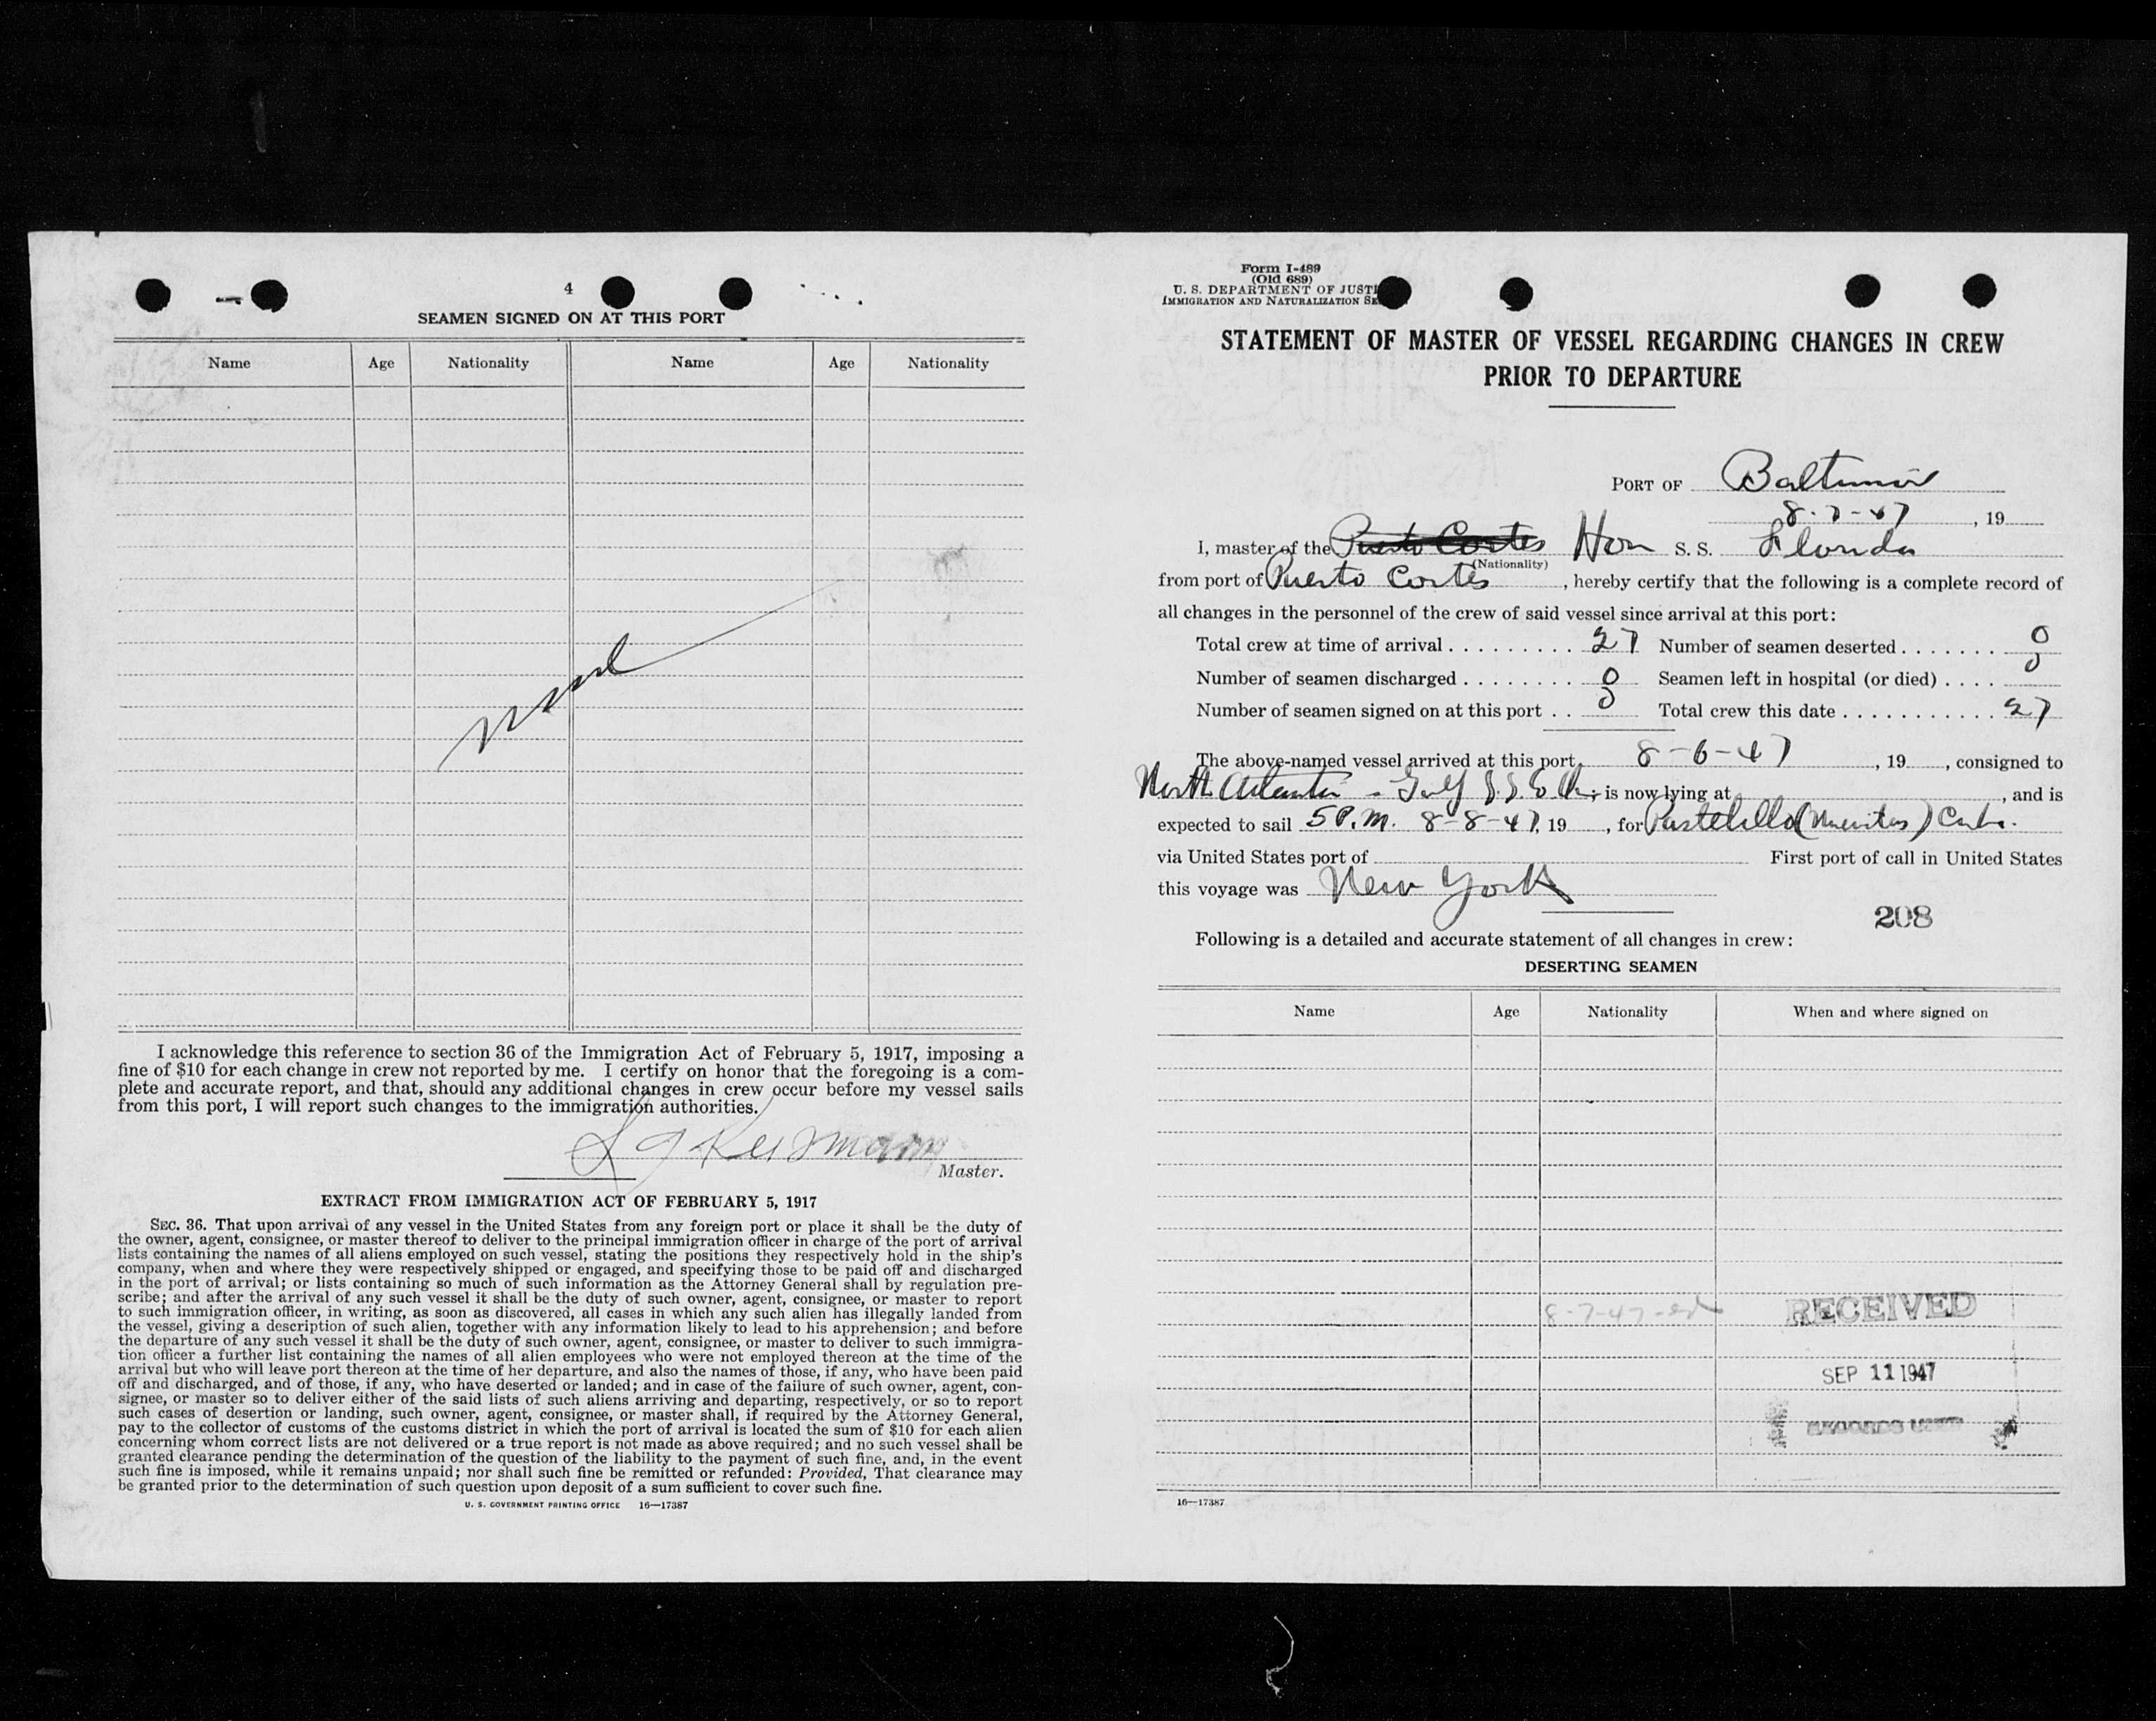 4
SEAMEN SIGNED ON AT THIS PORT
Name Age Nationality Name Age Nationality
I acknowledge this reference to section 36 of the Immigration Act of February 5, 1917, imposing a
fine of $10 for each change in crew not reported by me. I certify on honor that the foregoing is a com-
plete and accurate report, and that, should any additional changes in crew occur before my vessel sails
from this port, I will report such changes to the immigration authorities.
Master.
EXTRACT FROM IMMIGRATION ACT OF FEBRUARY 5, 1917
SEC. 36. That upon arrival of any vessel in the United States from any foreign port or place it shall be the duty of
the owner, agent, consignee, or master thereof to deliver to the principal immigration officer in charge of the port of arrival
lists containing the names of all aliens employed on such vessel, stating the positions they respectively hold in the ship's
company, when and where they were respectively shipped or engaged, and specifying those to be paid off and discharged
in the port of arrival; or lists containing so much of such information as the Attorney General shall by regulation pre-
scribe; and after the arrival of any such vessel it shall be the duty of such owner, agent, consignee, or master to report
to such immigration officer, in writing, as soon as discovered, all cases in which any such alien has illegally landed from
the vessel, giving a description of such alien, together with any information likely to lead to his apprehension; and before
the departure of any such vessel it shall be the duty of such owner, agent, consignee, or master to deliver to such immigra-
tion officer a further list containing the names of all alien employees who were not employed thereon at the time of the
arrival but who will leave port thereon at the time of her departure, and also the names of those, if any, who have been paid
off and discharged, and of those, if any, who have deserted or landed; and in case of the failure of such owner, agent, con-
signee, or master so to deliver either of the said lists of such aliens arriving and departing, respectively, or so to report
such cases of desertion or landing, such owner, agent, consignee, or master shall, if required by the Attorney General,
pay to the collector of customs of the customs district in which the port of arrival is located the sum of $10 for each alien
concerning whom correct lists are not delivered or a true report is not made as above required; and no such vessel shall be
granted clearance pending the determination of the question of the liability to the payment of such fine, and, in the event
such fine is imposed, while it remains unpaid; nor shall such fine be remitted or refunded: Provided, That clearance may
be granted prior to the determination of such question upon deposit of a sum sufficient to cover such fine.
U. S. GOVERNMENT PRINTING OFFICE 16—17387
Form I-489
(Old 689)
U. S. DEPARTMENT OF JUSTI
IMMIGRATION AND NATURALIZATION SE
STATEMENT OF MASTER OF VESSEL REGARDING CHANGES IN CREW
PRIOR TO DEPARTURE
PORT OF Baltimore
8-7-47, 19
I, master of the Puerto Cortes Hon S. S. Florida
(Nationality)
from port of Puerto Cortes, hereby certify that the following is a complete record of
all changes in the personnel of the crew of said vessel since arrival at this port:
Total crew at time of arrival 27 Number of seamen deserted 0
Number of seamen discharged 0 Seamen left in hospital (or died) 0
Number of seamen signed on at this port 0 Total crew this date 27
The above-named vessel arrived at this port, 8-6-47, 19, consigned to
North Atlantic - Gulf S.S. Co.; is now lying at, and is
expected to sail 5 P.M. 8-8-47, 19, for Pastelillo (Nuevitas) Cuba.
via United States port of First port of call in United States
this voyage was New York
208
Following is a detailed and accurate statement of all changes in crew:
DESERTING SEAMEN
Name Age Nationality When and where signed on
8-7-47
RECEIVED
SEP 11 1947
RECORDS UNIT
16—17387